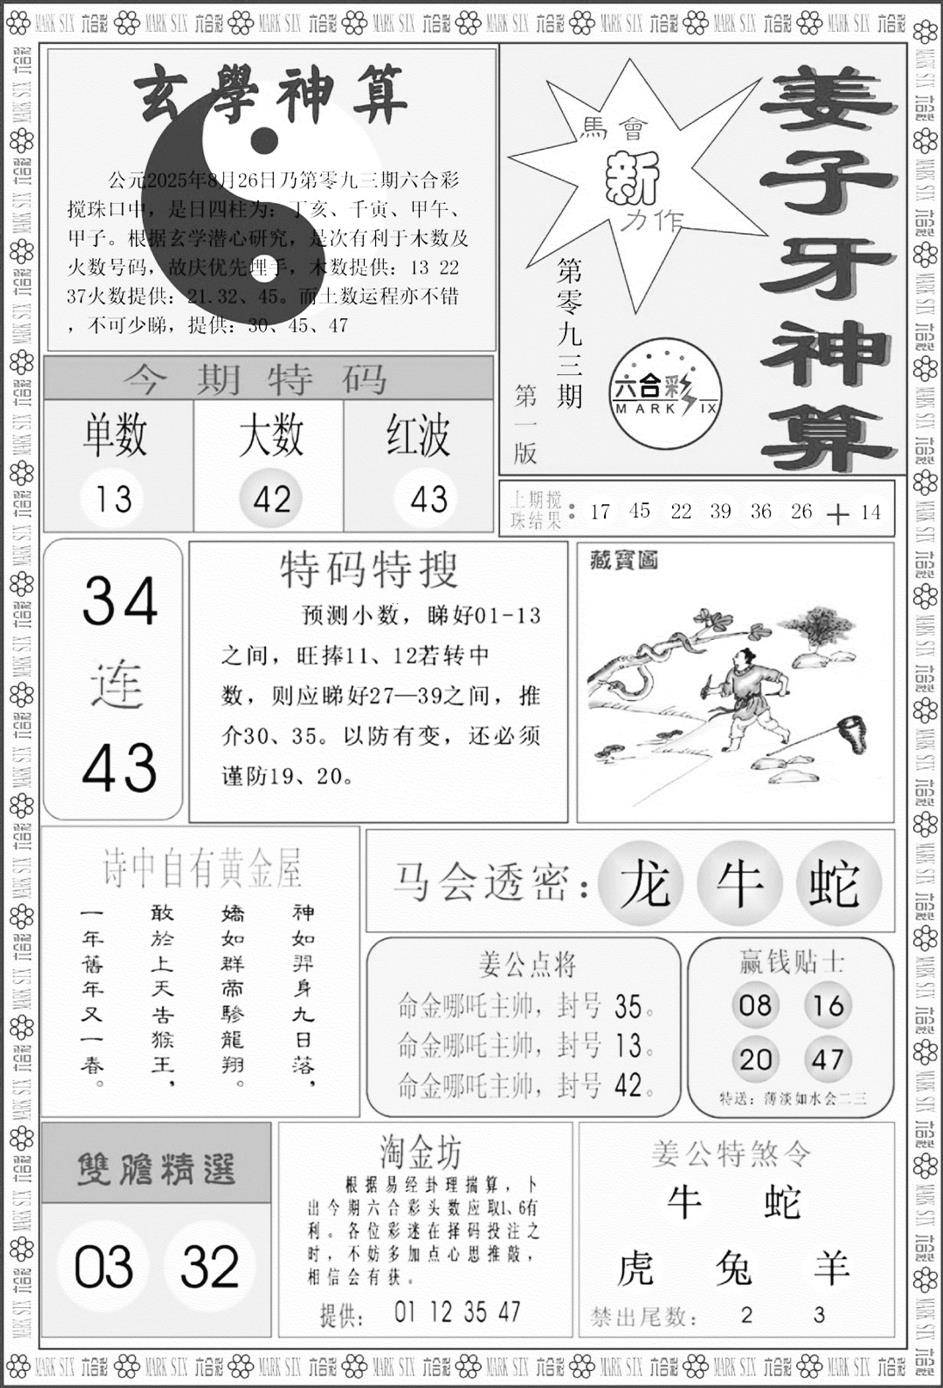 玄學神算
公元2025年8月26日乃第零九三期六合彩
搅珠口中，是日四柱为：丁亥、千寅、甲午、
甲子。根据玄学潜心研究，是次有利于木数及
火数号码，故庆优先埋手，木数提供：13 22
37火数提供：21.32、45。而土数运程亦不错
，不可少睇，提供：30、45、47
馬會
新
力作
第零九三期
第一版
六合彩
MARK SIX
姜子牙神算
今期特码
单数 大数 红波
13 42 43
上期搅
珠结果：17 45 22 39 36 26 + 14
34
连
43
特码特搜
预测小数，睇好01-13
之间，旺捧11、12若转中
数，则应睇好27—39之间，推
介30、35。以防有变，还必须
谨防19、20。
藏寶圖
诗中自有黄金屋
神如羿身九日落，
嬌如群帝驂龍翔。
敢於上天告猴王，
一年舊年又一春。
马会透密：龙 牛 蛇
姜公点将
命金哪吒主帅，封号 35。
命金哪吒主帅，封号 13。
命金哪吒主帅，封号 42。
赢钱贴士
08 16
20 47
特送：薄淡如水会二三
雙膽精選
03 32
淘金坊
根据易经卦理揣算，卜
出今期六合彩头数应取1、6有
利。各位彩迷在择码投注之
时，不妨多加点心思推敲，
相信会有获。
提供： 01 12 35 47
姜公特煞令
牛 蛇
虎 兔 羊
禁出尾数： 2 3